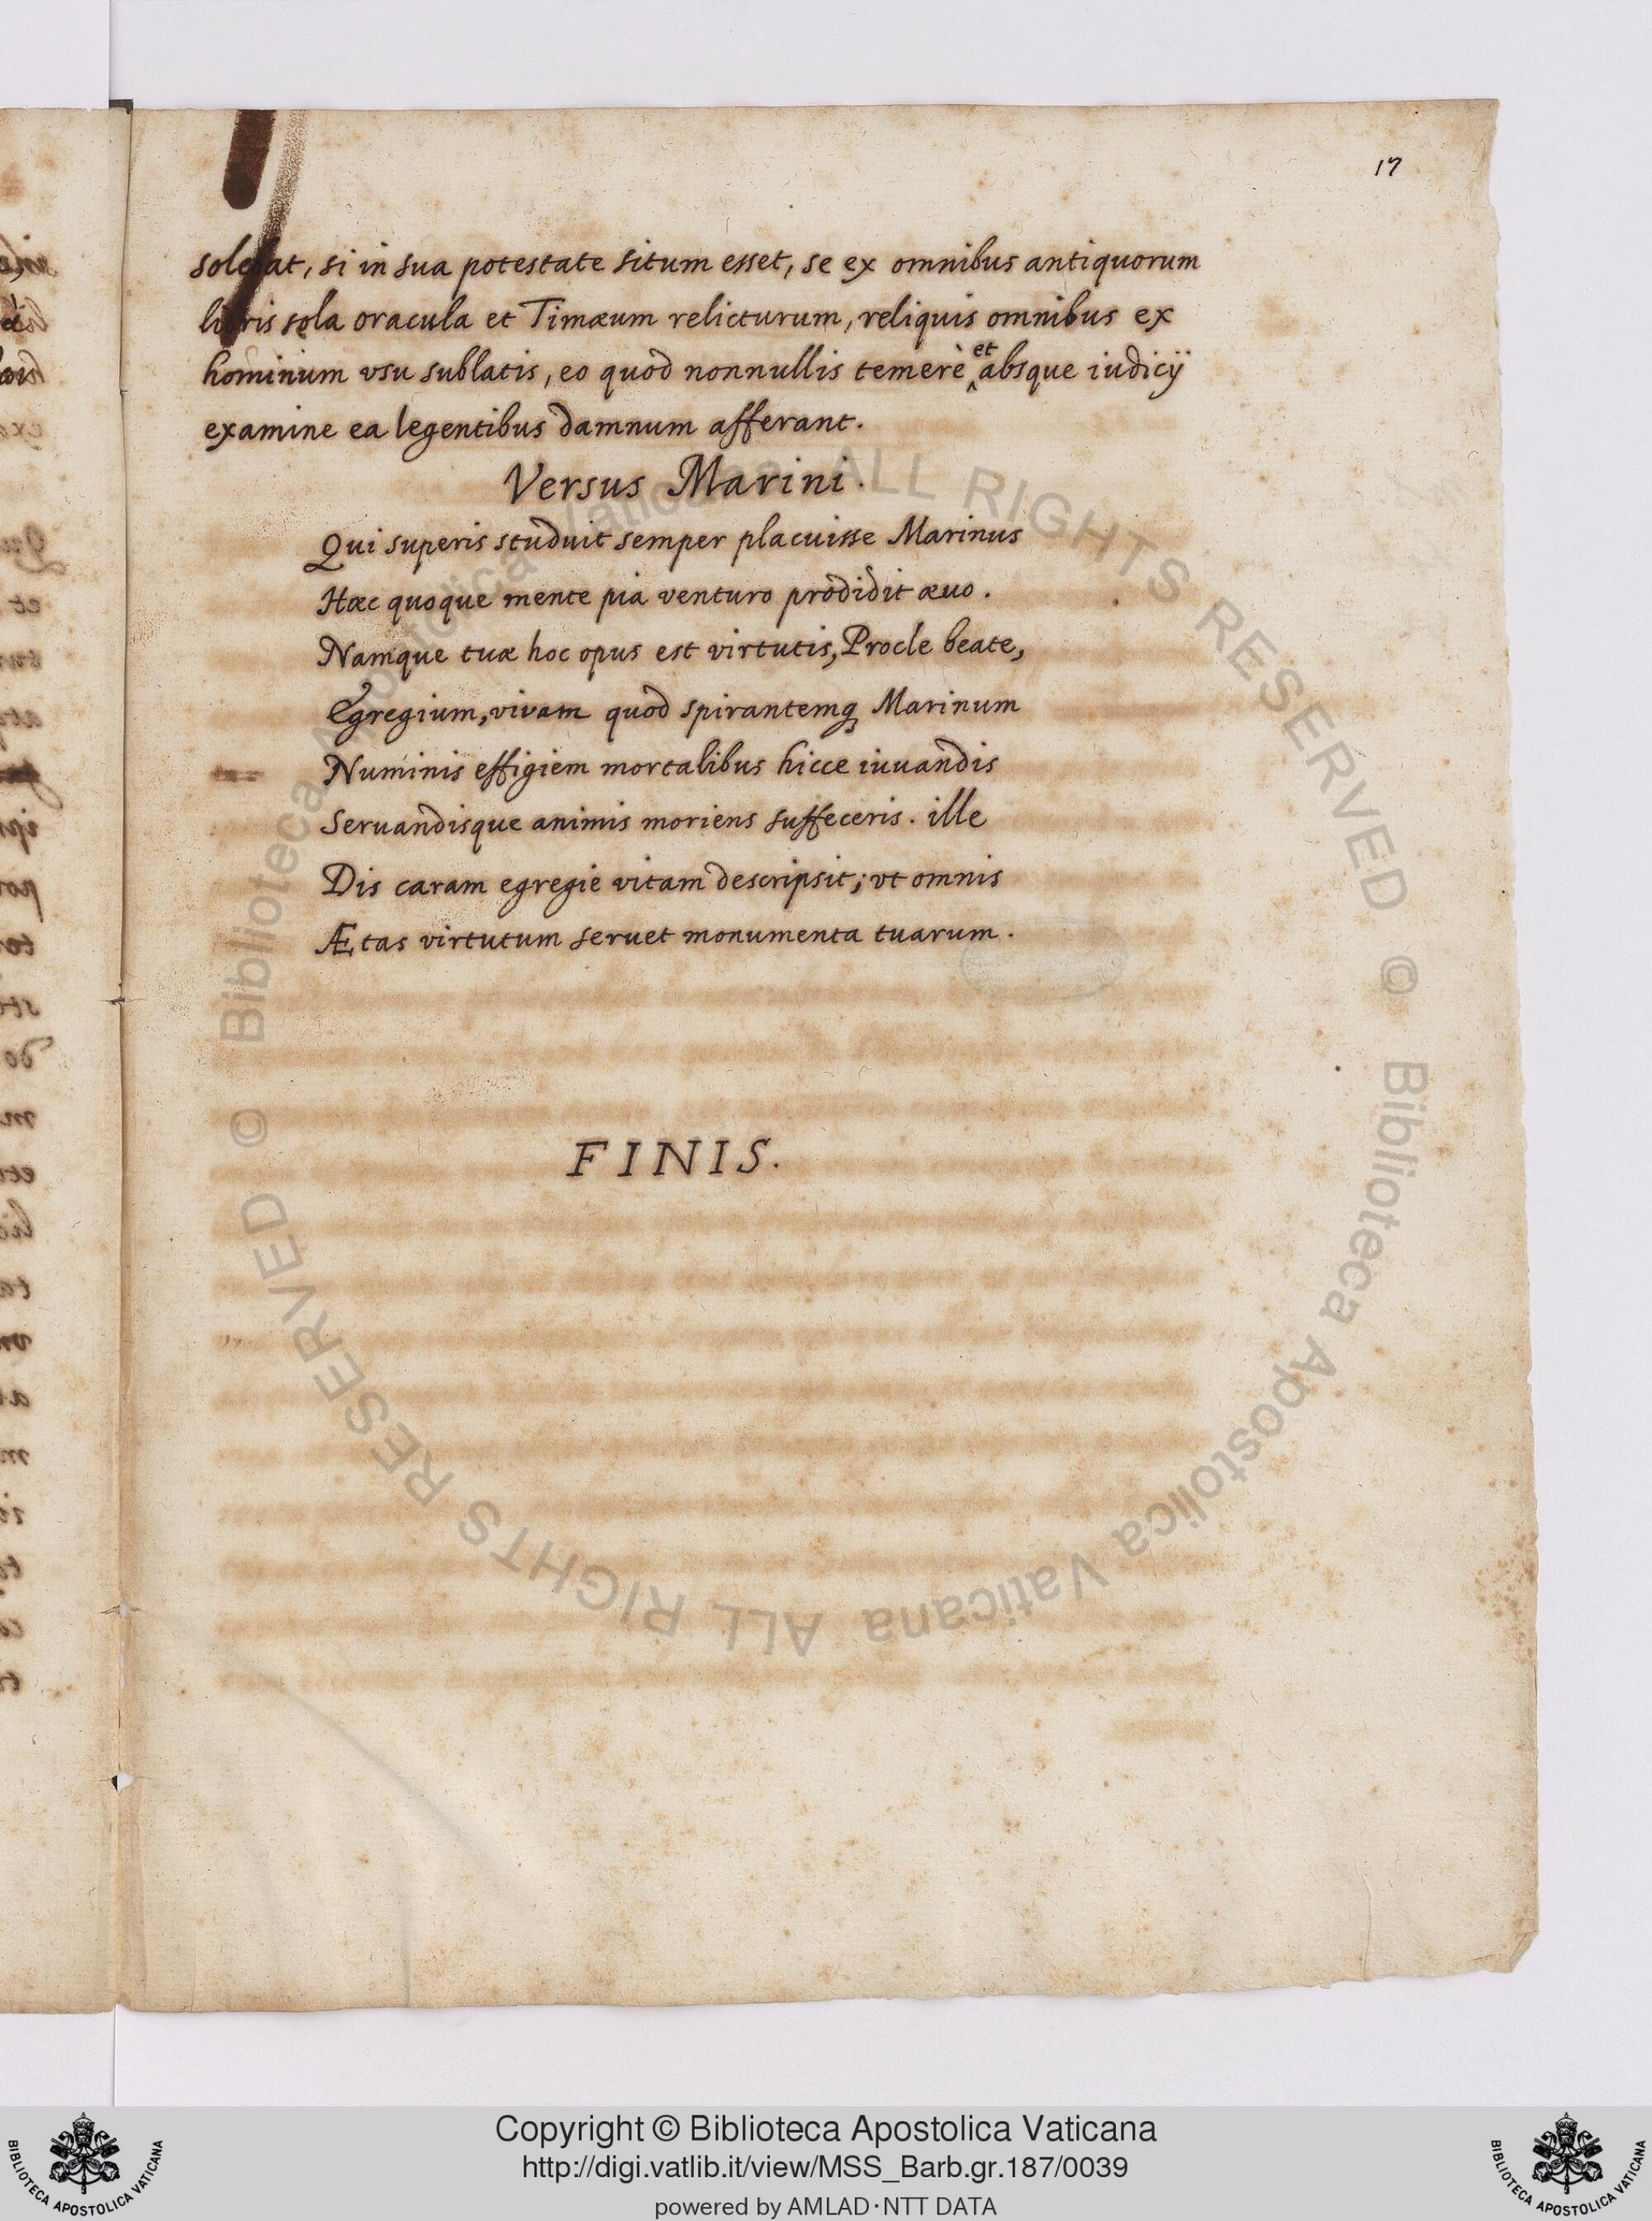 17
solebat, si in sua potestate situm esset, se ex omnibus antiquorum
libris sola oracula et Timæum relicturum, reliquis omnibus ex
hominum vsu sublatis, eo quod nonnullis temerè et absque iudicij
examine ea legentibus damnum afferant.
Versus Marini.
Qui superis studuit semper placuisse Marinus
Hæc quoque mente pia venturo prodidit æuo.
Namque tuæ hoc opus est virtutis, Procle beate,
Egregium, vivam quod spirantemq Marinum
Numinis effigiem mortalibus hicce iuuandis
Seruandisque animis moriens suffeceris. ille
Dis caram egregie vitam descripsit; vt omnis
Ætas virtutum seruet monumenta tuarum.
FINIS.
© Biblioteca Apostolica Vaticana ALL RIGHTS RESERVED
© Biblioteca Apostolica Vaticana ALL RIGHTS RESERVED
Copyright © Biblioteca Apostolica Vaticana
http://digi.vatlib.it/view/MSS_Barb.gr.187/0039
powered by AMLAD·NTT DATA
BIBLIOTECA APOSTOLICA VATICANA
BIBLIOTECA APOSTOLICA VATICANA